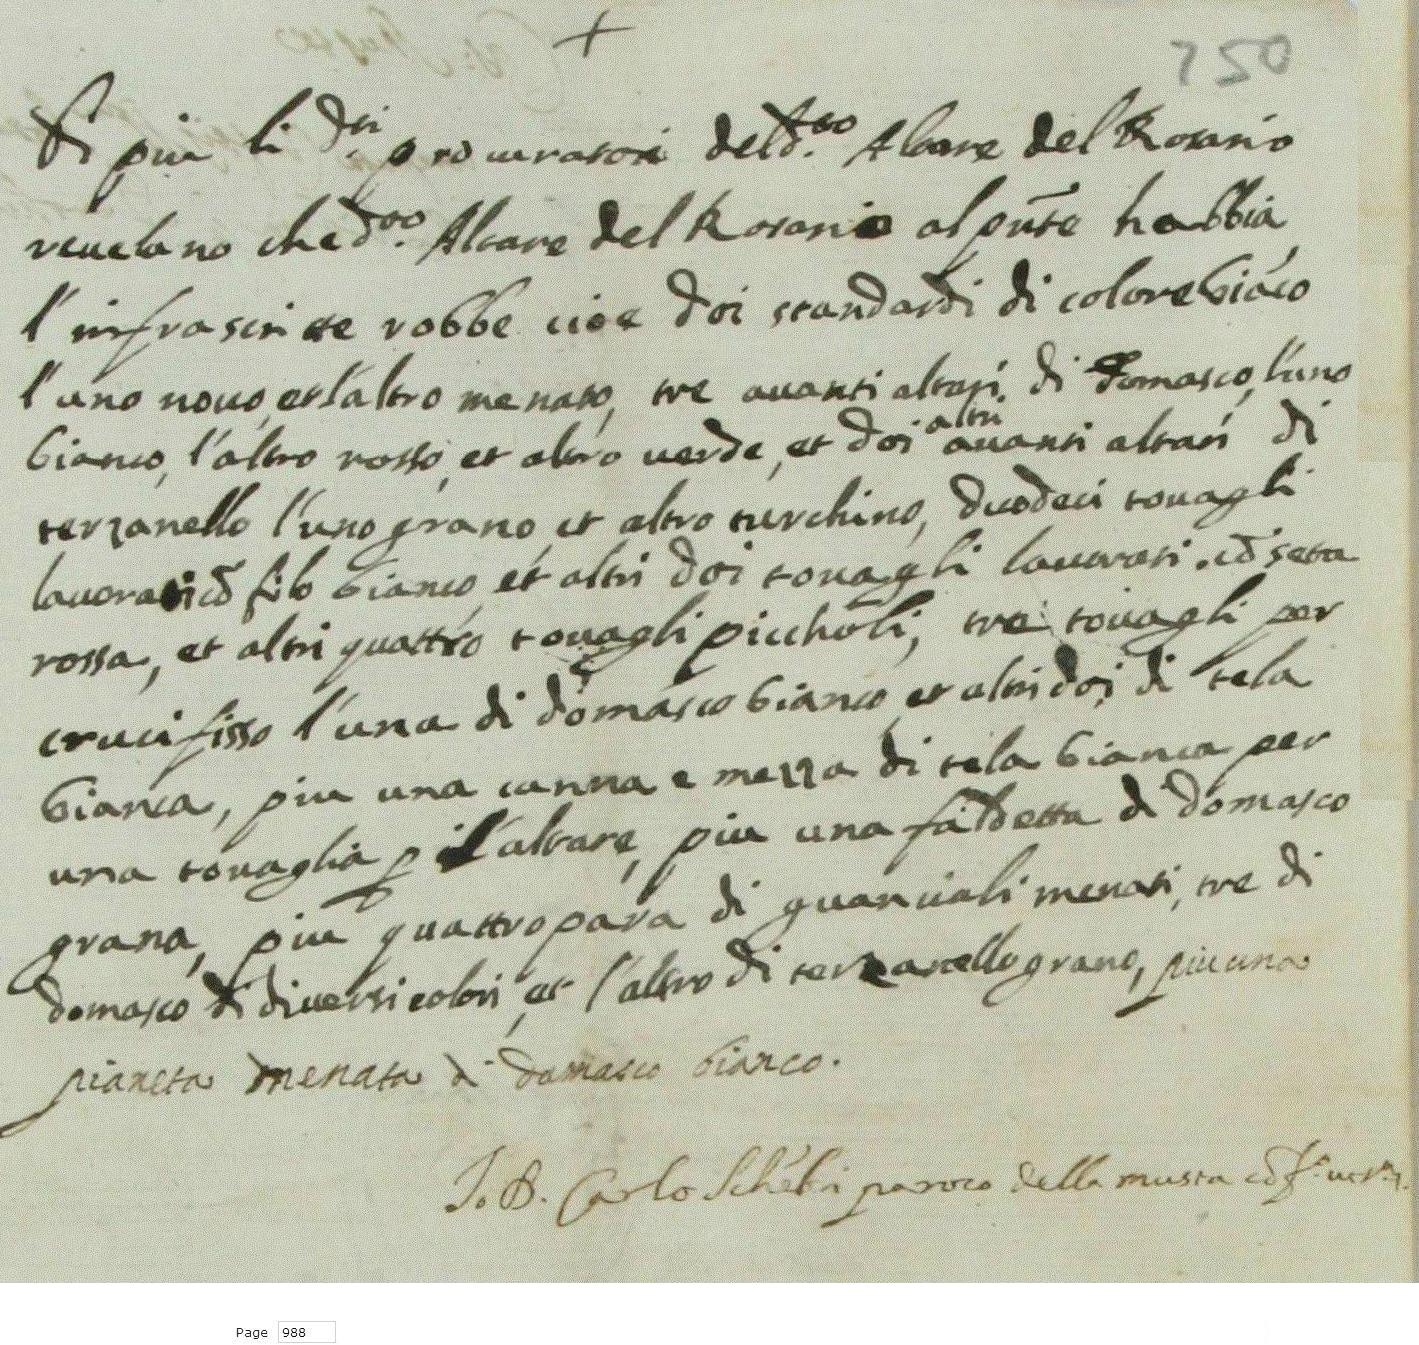 +
520
Di piu li d.ri procuratori del d.tto Altare del Rosario
revelano che d.tto Altare del Rosario al pñte habbia
l'infrascritte robbe cioe doi standardi di colore biãco
l'uno novo, et l'altro menato, tre avanti altari di domasco, l'uno
bianco, l'altro rosso, et altro verde, et doi altri avanti altari di
terzanello l'uno grano, et altro turchino, duodeci tovagli
lavorati cõ filo bianco, et altri doi tovagli lavorati cõ seta
rossa, et altri quattro tovagli piccholi, tre tovagli per
crucifisso l'una di domasco bianco, et altri doi di tela
bianca, piu una canna e mezza di tela bianca per
una tovaglia p l'altare, piu una faldetta di domasco
grana, piu quattro para di guanciali menati, tre di
domasco di diversi colori, et l'altro di terzanello grano, piu una
pianeta menata di domasco bianco.
Io D. Carlo Schēbri paroco della musta cõf.o
Page 988